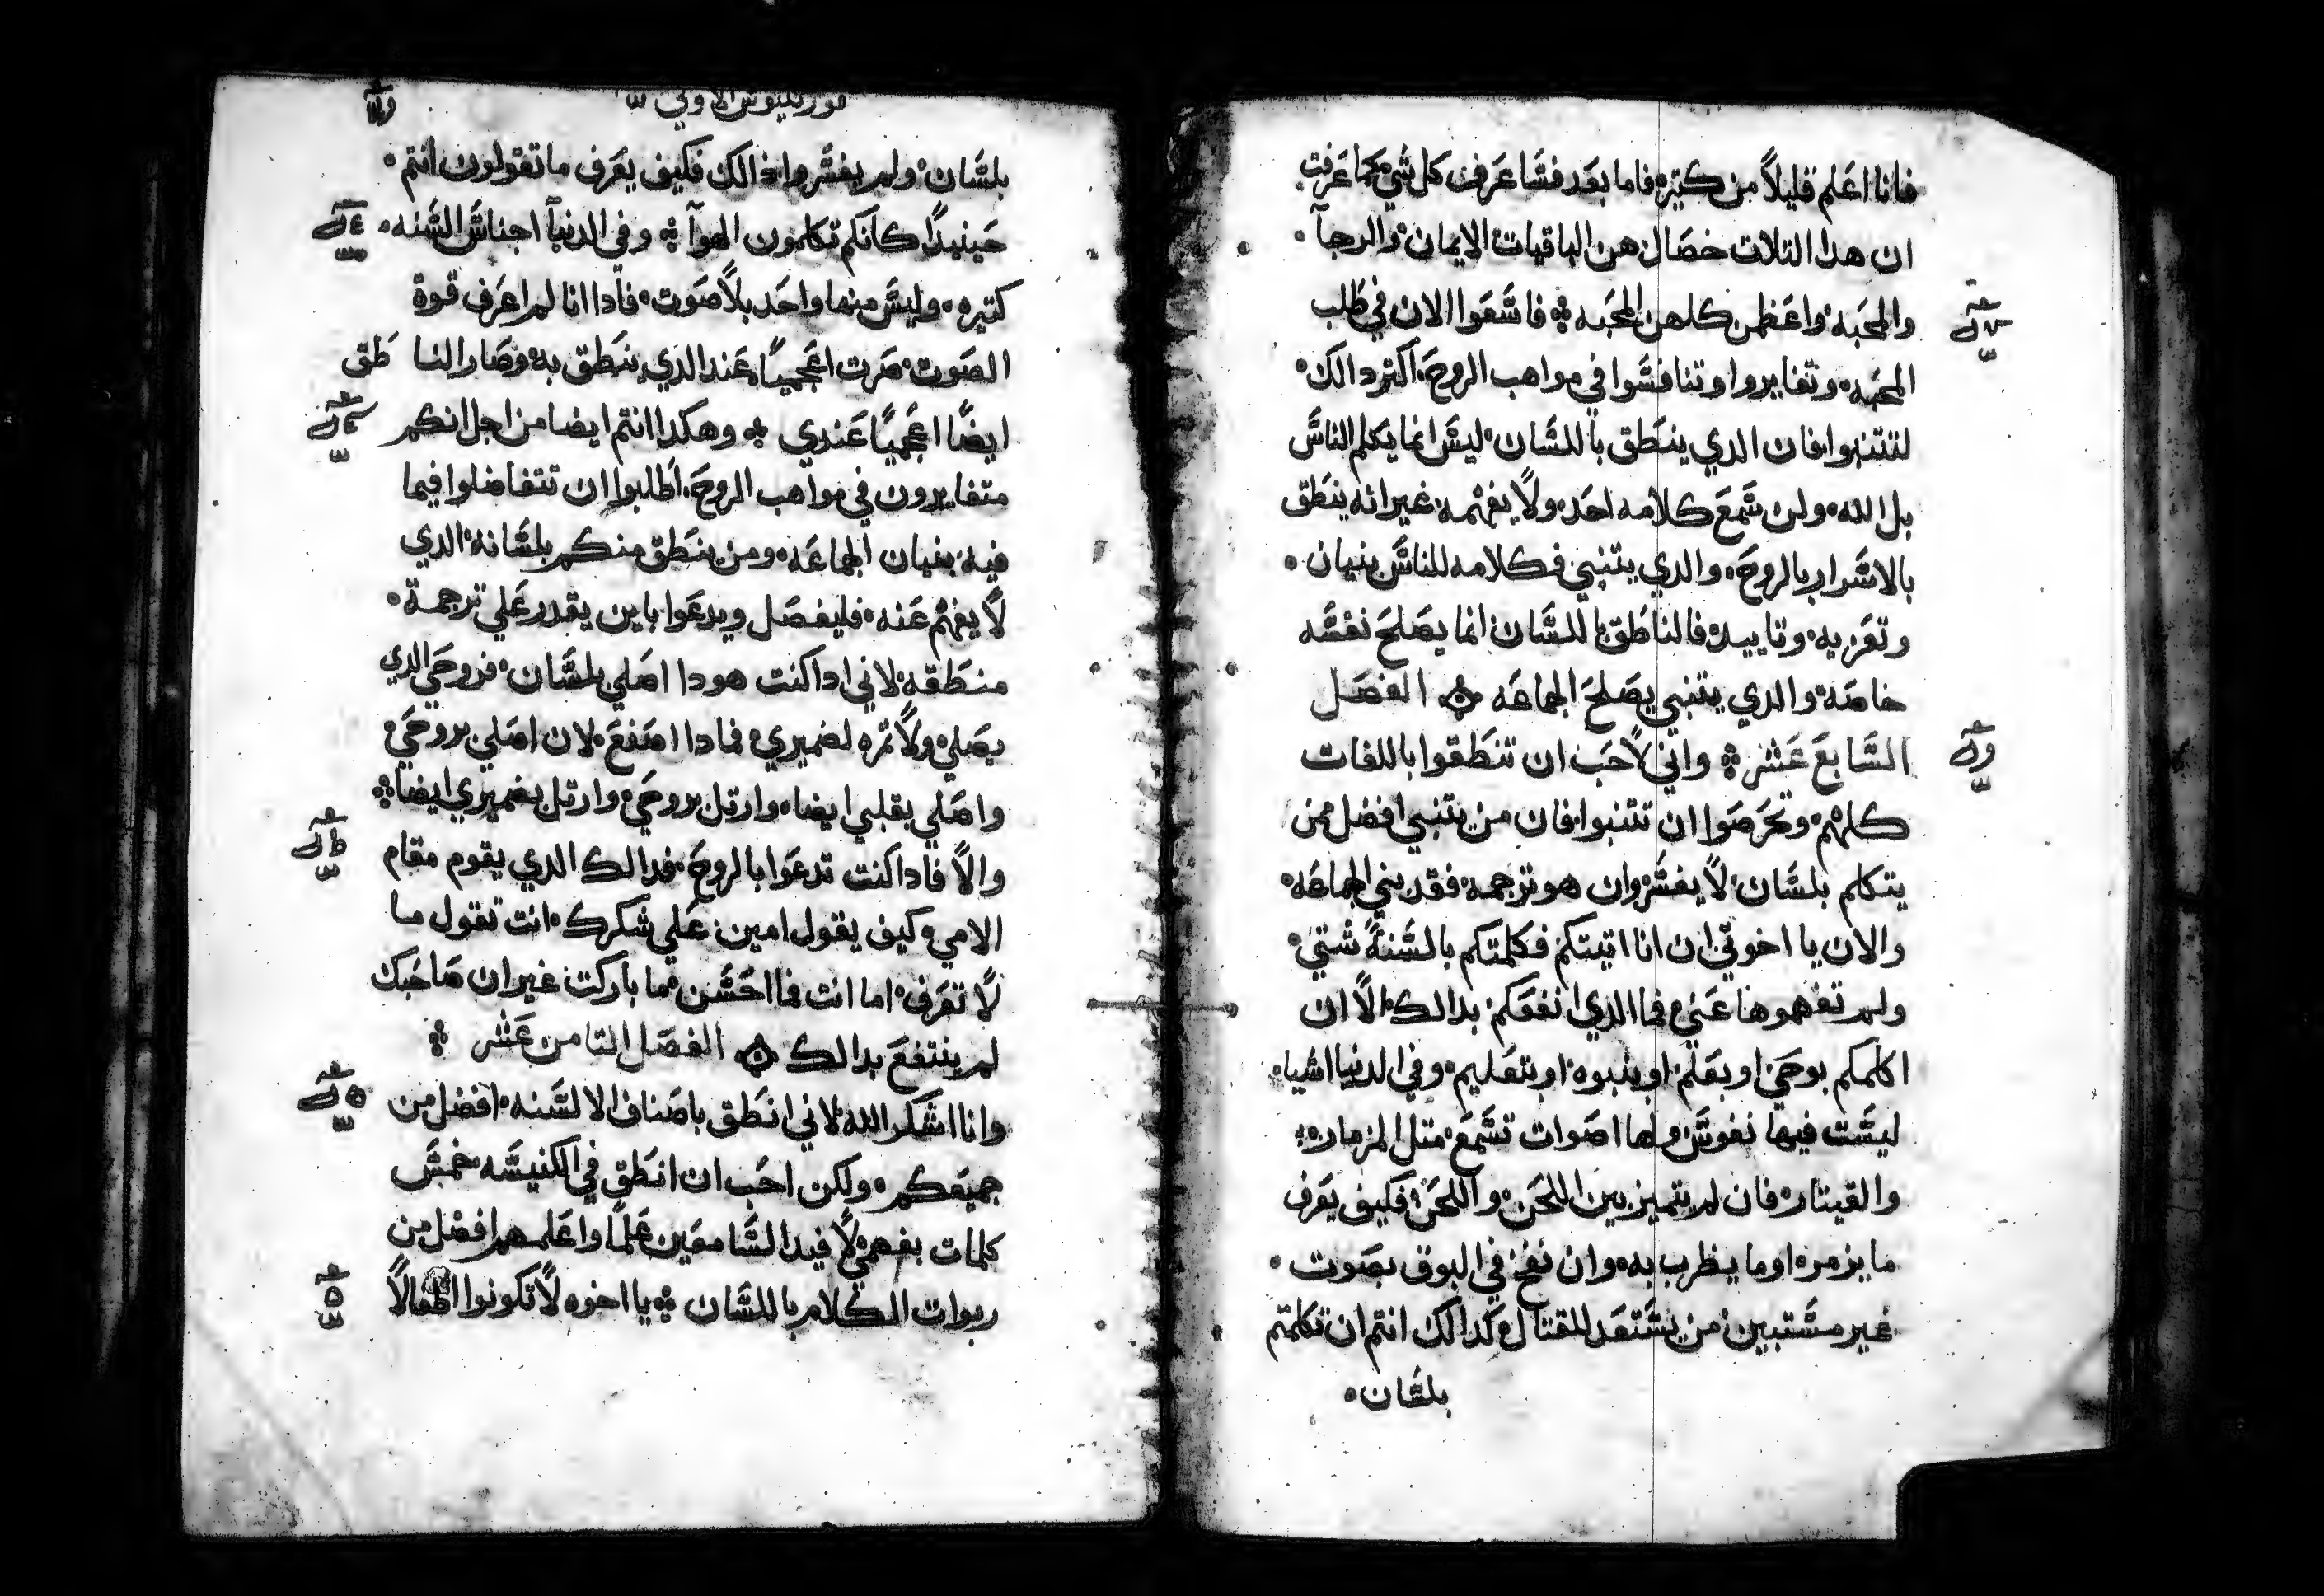 فانا اعلم قليلاً من كتيره فاما بعد فسَّاعرف كل شي كما عرفت
ان هدا التلات خصال هن الباقيات الايمان والرجآ
والمحبه واعظمن كلهن المحبه فاسَّعوا الان في طلب
المحبه وتغايروا وتنافسَّوا في مواهب الروح اكتر دالك
لتتنبوا فان الدي ينطق باللسَّان ليسَّ انما يكلم الناسَّ
بل الله ولن سَّمع كلامه احد ولاً يفهمه غير انه ينطق
بالاسَّرار بالروح والدي يتنبي فكلامه للناسَّ بنيان
وتعزيه وتاييد فالناطق باللسَّان انما يصلح نفسَّه
خاصه والدي يتنبي يصلح الجماعه الفصل
السَّابع عَشر واني لاًحب ان تنطقوا باللغات
كلهم وتحرصوا ان تتنبوا فان من يتنبي افضل ممن
يتكلم بلسَّان لاً يفسَّر وان هو ترجمه فقد بني الجماعه
والان يا اخوتي ان انا اتيتكم فكلمتكم بالسَّنةً شتي
ولم تفهموها عني فما الدي انفعكم بدالك الاً ان
اكلمكم بوحي او بعلم او بنبوه او بتعليم وفي الدنيا اشيا
ليسَّت فيها نفوسَّ ولها اصوات تسَّمع متل المزمار
والقيتار فان لم يتميز بين اللحن واللحن فكيف يعرف
ما يزمر او ما يظرب به وان نفخ في البوق بصوت
غير مسَّتبين من يسَّتعد للقتال كدالك انتم ان تكلمتم
بلسَّان
قورنتيوس الاولي
بلسَّان ولم يفسَّروا دالك فكيف يعرف ما تقولون انتم
حينيداً كانكم تكلمون الهوآ وفي الدنيآ اجناسَّ السَّنه
كتيره وليسَّ منها واحد بلاً صوت فادا انا لم اعرف قوة
الصوت صرت اعجمياً عند الدي ينطق به وصار النا طق
ايضاً اعجمياً عندي وهكدا انتم ايضا من اجل انكم
متغايرون في مواهب الروح اطلبوا ان تتفاضلوا فيما
فيه بنيان الجماعه ومن ينطق منكم بلسَّانه الدي
لاً يفهم عنه فليفصل ويدعوا باين يقدر علي ترجمة
منطقه لاني ادا كنت هودا اصلي بلسَّان فروحي الدي
يصلي ولاً تمره لضميري فمادا اصنع لان اصلي بروحي
واصلي بقلبي ايضا وارتل بروحي وارتل بضميري ايضا
والاً فادا كنت تدعوا بالروح فدالك الدي يقوم مقام
الامي كيف يقول امين علي شكرك انت تقول ما
لاً تعرف اما انت فما احسَّن ما باركت غير ان صاحبك
لم ينتفع بدالك الفصل التامن عشر
وانا اشكر الله لاني انطق باصناف الالسَّنه افضل من
جميعكم ولكن احب ان انطق في الكنيسَّه خمسَّ
كلمات بفهمي لاًفيد السَّامعين علماً واعلمهم افضل من
ربوات الكلام باللسَّان يا اخوه لاً تكونوا اطفالاً